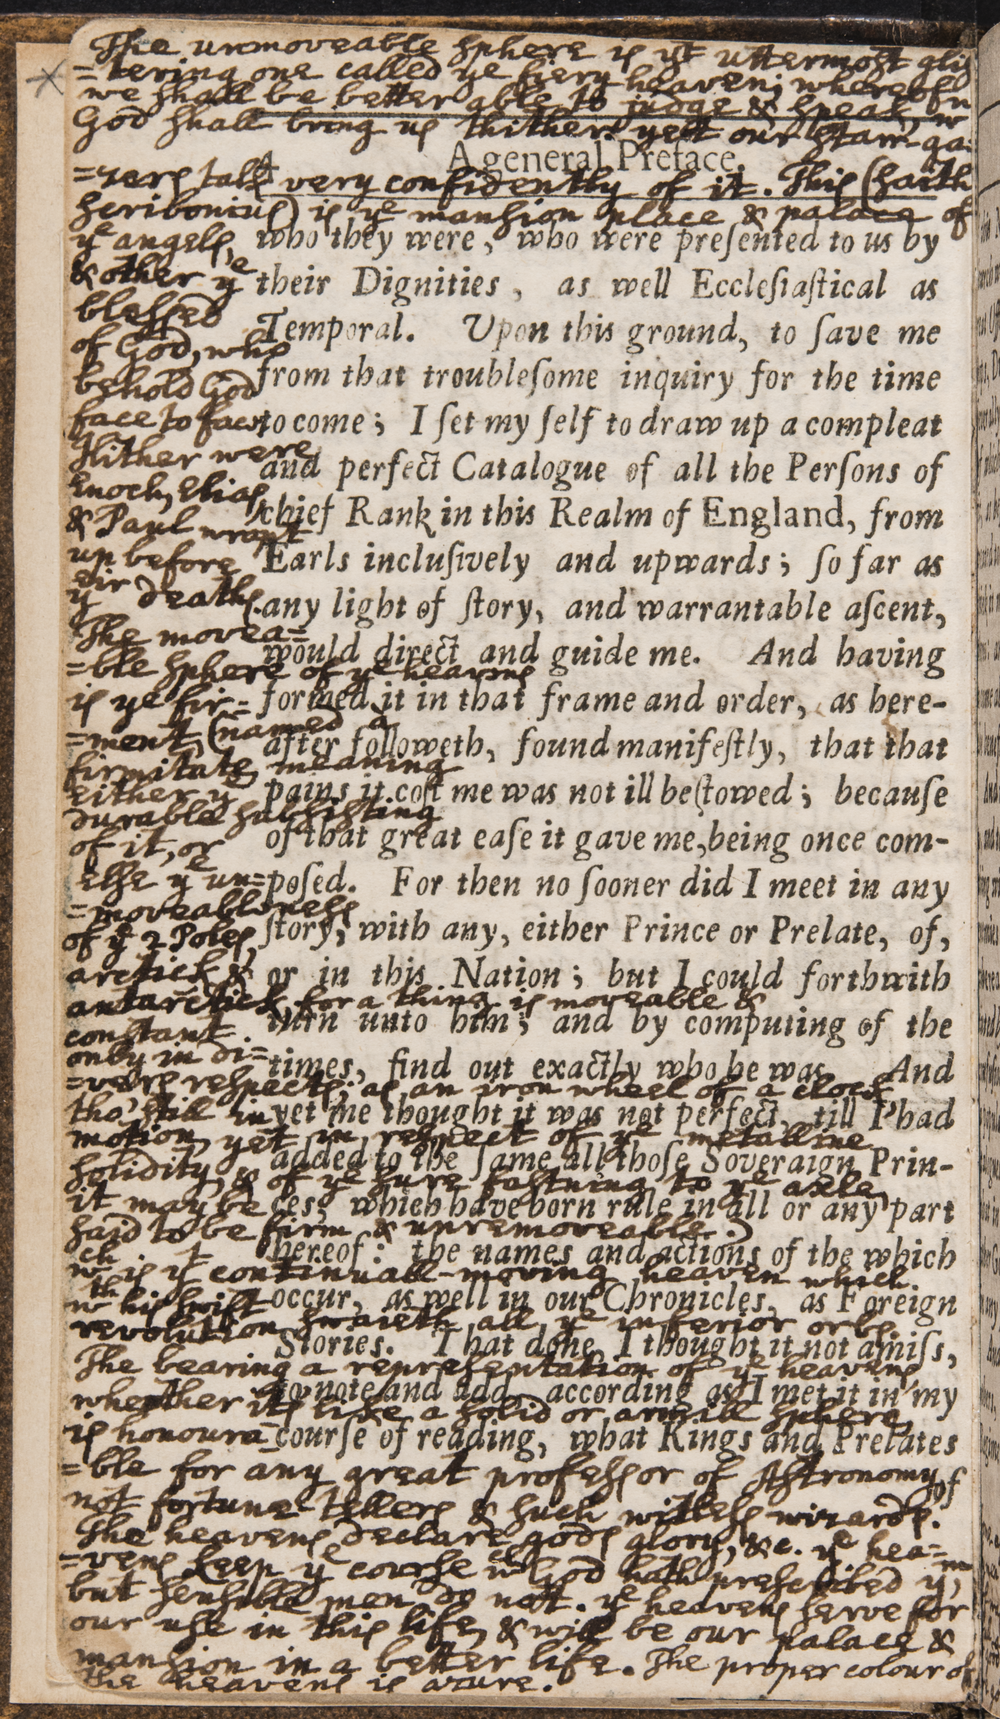 The unmoveable sphere is yt uttermost glis
=tering one called ye fiery heaven; whereof
we shall be better able to judge & speak, w
God shall bring us thither: yett our starr-ga=
4
A general Preface.
=zers talk very confidently of it. This (saith
Scribonius) is ye mansion place & palace of
ye angels,
& other ye
blessed
of God, who
behold God
face to face
Hither were
Enoch, Elias,
& Paul wrapt
up before
yeir death.
The movea=
=ble sphere of ye heavens
is ye fir=
=ment, (named a
firmitate, meaning
either ye
durable subsisting
of it, or
else ye un=
=moveableness
of ye 2 Poles,
arctick &
antarctick, for a thing is moveable &
constant
only in di=
=vers respects; as an iron wheel of a clock
tho' still in
motion, yet in respect of ye metalline
solidity, & of ye sure fastning to ye axle,
it may be
said to be firm & unremoveable.)
wch is yt continuall-moving heaven which
wth his swift
revolution swaieth all ye inferior orbs.
The bearing a representation of ye heavens
whether its like a solid or armill sphere,
is honoura
=ble for any great professor of Astronomy,
not fortune tellers & such witless wizards. of
The heavens declare gods glory, &c. ye hea=
=vens keep ye course wch God hath prescribed ym,
but sensible men do not. ye heavens serve for
our use in this life, & will be our palace &
mansion in a better life. The proper colour of
the heavens is azure.
who they were, who were preſented to us by
their Dignities, as well Eccleſiaſtical as
Temporal. Upon this ground, to ſave me
from that troubleſome inquiry for the time
to come; I ſet my ſelf to draw up a compleat
and perfect Catalogue of all the Perſons of
chief Rank in this Realm of England, from
Earls incluſively and upwards; ſo far as
any light of ſtory, and warrantable aſcent,
would direct and guide me. And having
formed it in that frame and order, as here-
after followeth, found manifeſtly, that that
pains it coſt me was not ill beſtowed; becauſe
of that great eaſe it gave me, being once com-
poſed. For then no ſooner did I meet in any
ſtory, with any, either Prince or Prelate, of,
or in this Nation; but I could forthwith
turn unto him; and by computing of the
times, find out exactly who he was. And
yet me thought it was not perfect, till I had
added to the ſame all thoſe Soveraign Prin-
ces, which have born rule in all or any part
hereof: the names and actions of the which
occur, as well in our Chronicles, as Foreign
Stories. That done, I thought it not amiſs,
to note and add, according as I met it in my
courſe of reading, what Kings and Prelates